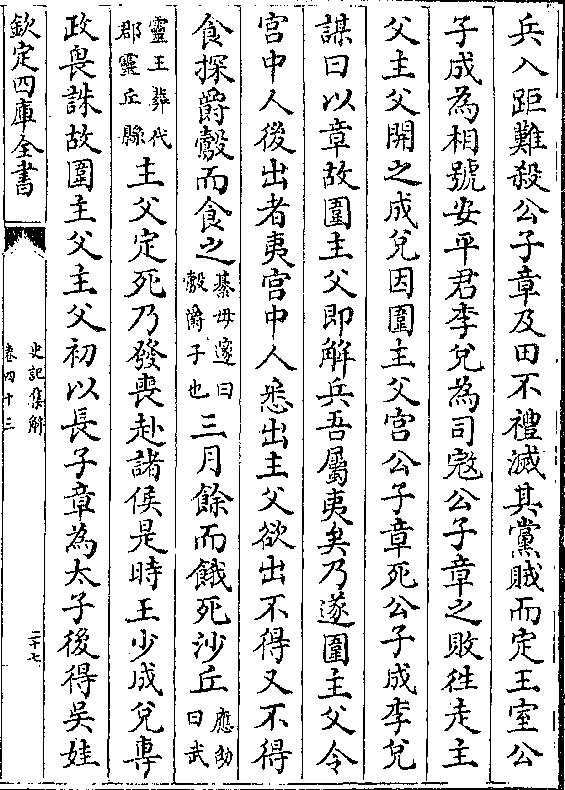 兵入距難殺公子章及田不禮滅其黨賊而定王室公
子成為相號安平君李兌為司寇公子章之敗往走主
父主父開之成兌因圍主父宮公子章死公子成李兌
謀曰以章故圍主父即解兵吾屬夷矣乃遂圍主父令
宮中人後出者夷宮中人悉出主父欲出不得又不得
食探爵鷇而食之綦毋邃曰鷇爵子也三月餘而餓死沙丘應劭曰武
靈王葬代郡靈丘縣主父定死乃發喪赴諸侯是時王少成兌專
政畏誅故圍主父主父初以長子章為太子後得吳娃
欽定四庫全書
史記集解
卷四十三
二十七